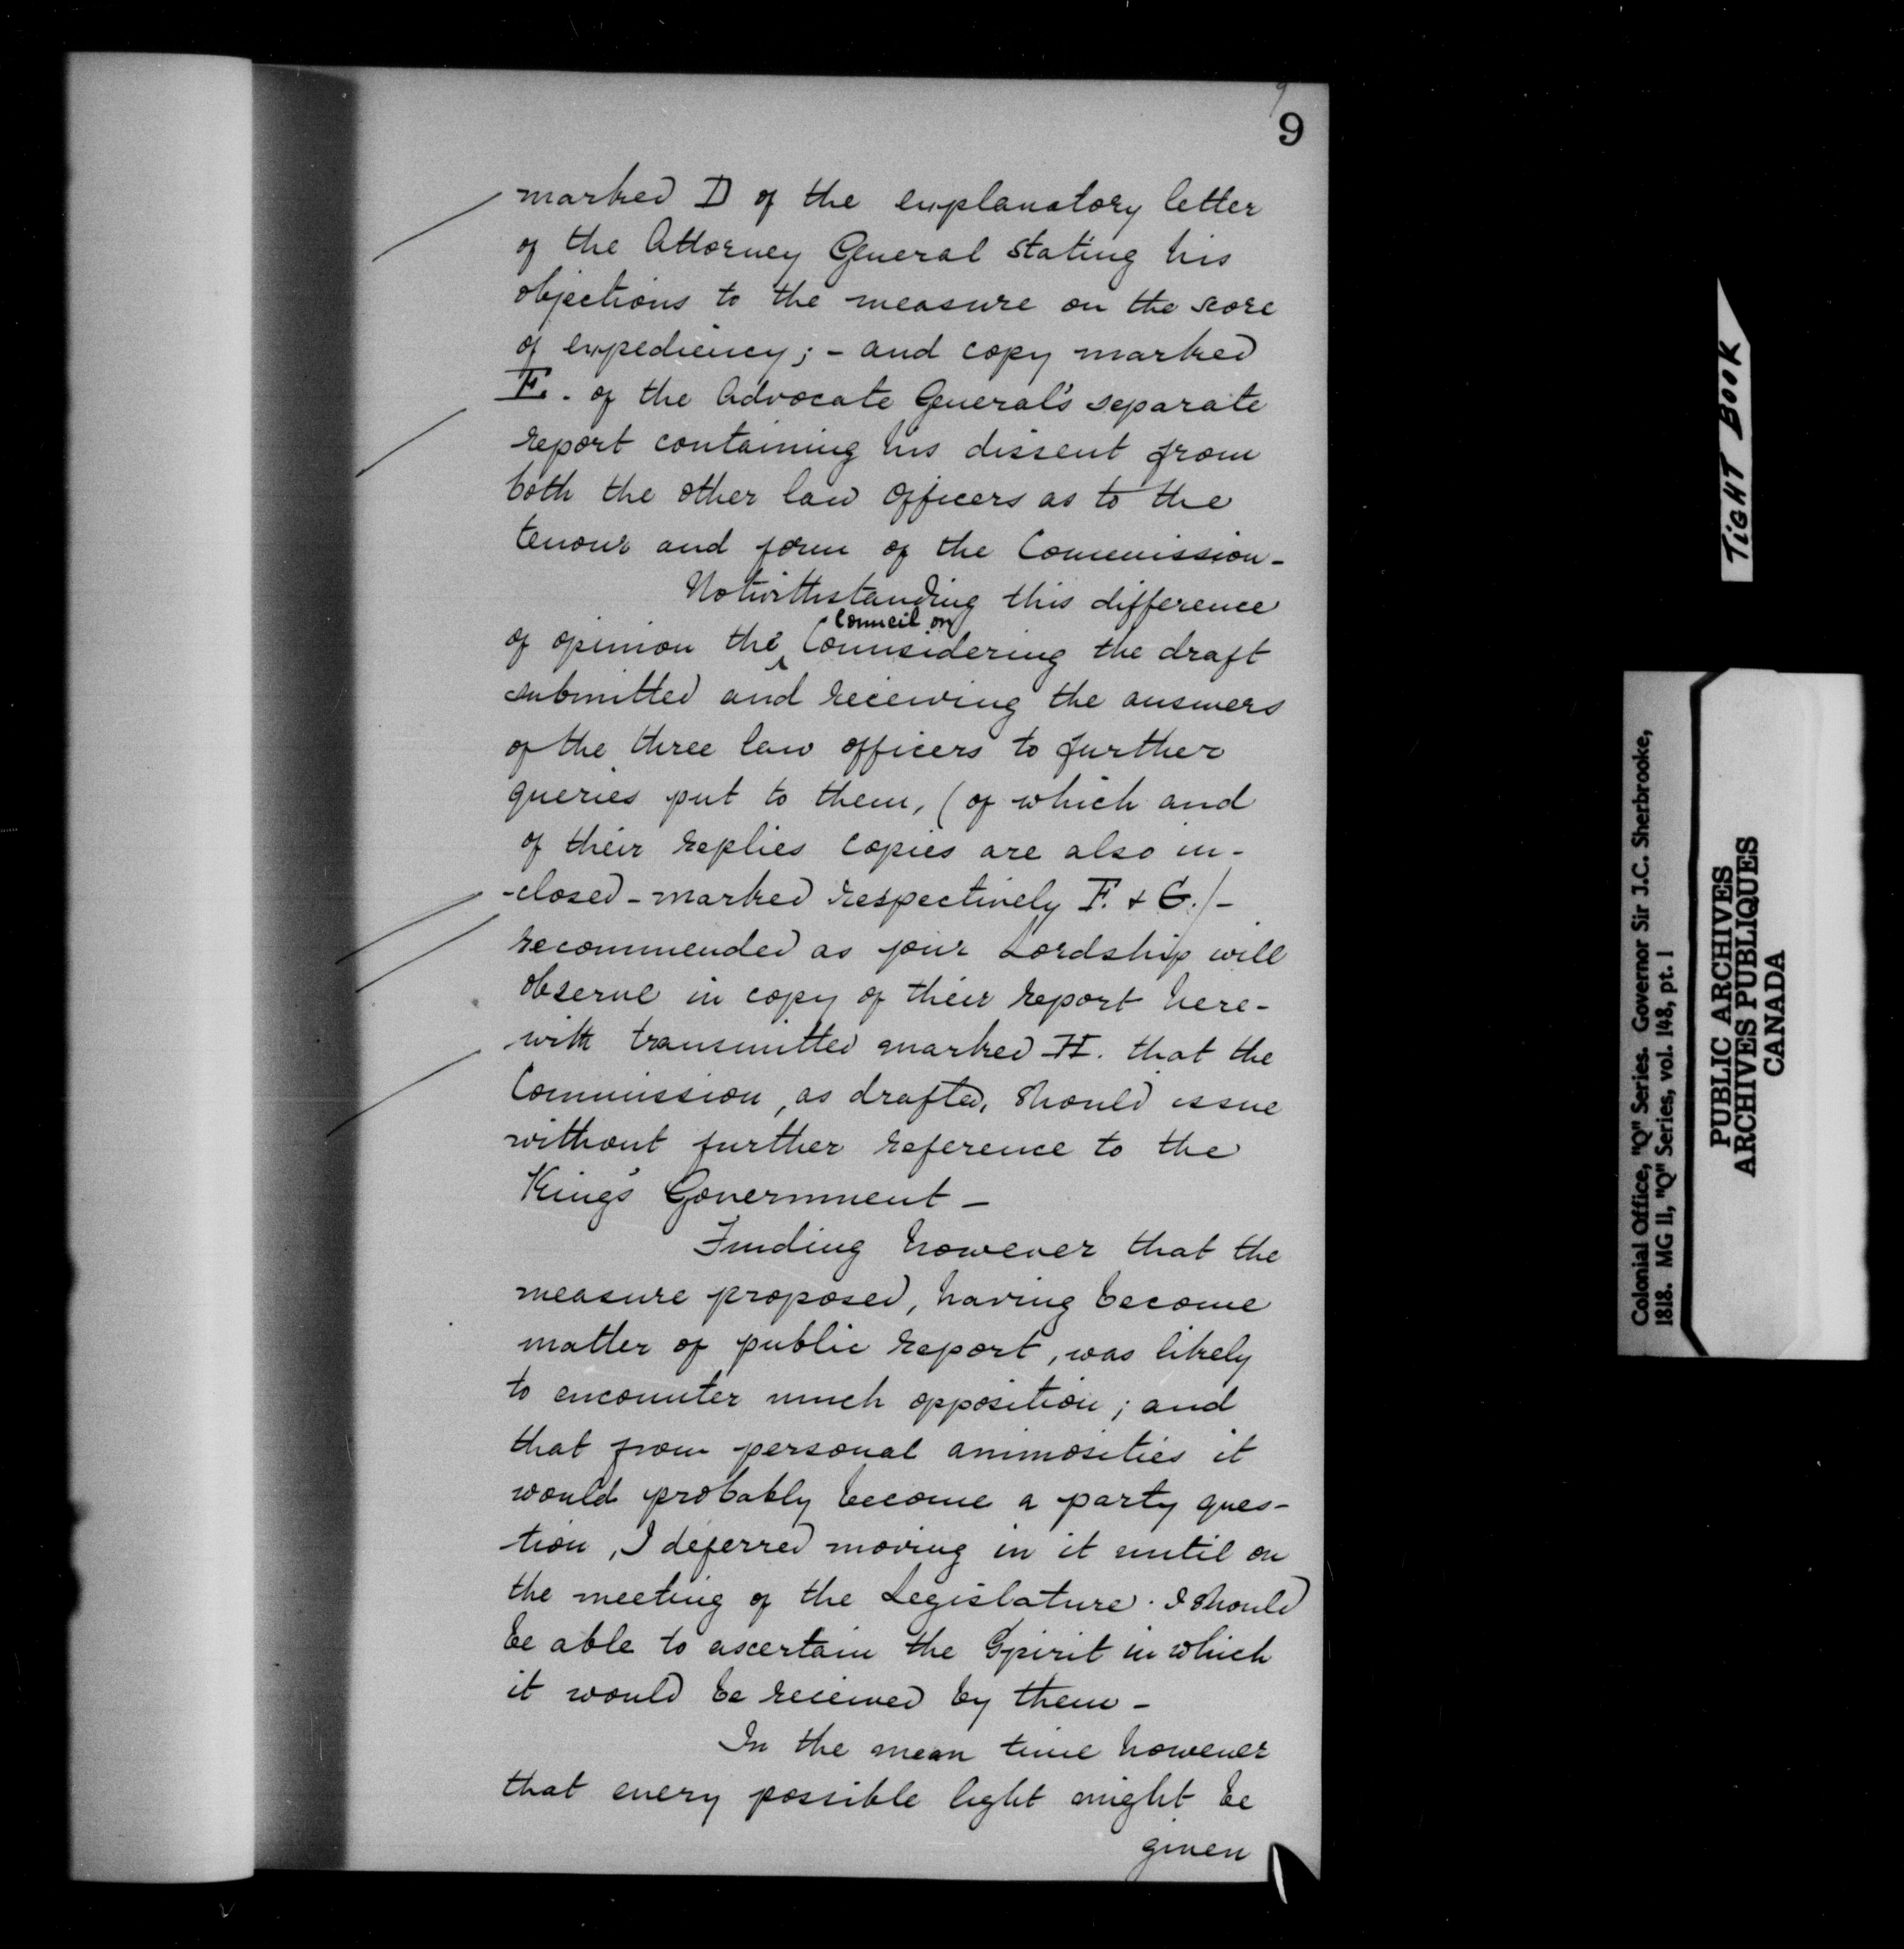 9
9
marked D of the explanatory letter
of the Attorney General stating his
objections to the measure on the score
of expediency; - and copy marked
E. - of the Advocate General's separate
report containing his dissent from
both the other law officers as to the
tenour and form of the Commission -
Notwithstanding this difference
Council on
of opinion the ‸ Counsidering the draft
submitted and receiving the answers
of the three law officers to further
queries put to them, (of which and
of their replies copies are also in-
-closed - marked respectively F. & G.) -
recommended as your Lordship will
observe in copy of their report here-
with transmitted marked H. that the
Commission, as drafted, should issue
without further reference to the
King's Government -
Finding however that the
measure proposed, having become
matter of public report, was likely
to encounter much opposition; and
that from personal animosities it
would probably become a party ques-
tion, I deferred moving in it until on
the meeting of the Legislature. I should
be able to ascertain the Spirit in which
it would be received by them -
In the mean time however
that every possible light might be
given
TIGHT BOOK
Colonial Office, "Q" Series. Governor Sir J.C. Sherbrooke,
1818. MG 11, "Q" Series, vol. 148, pt. 1
PUBLIC ARCHIVES
ARCHIVES PUBLIQUES
CANADA